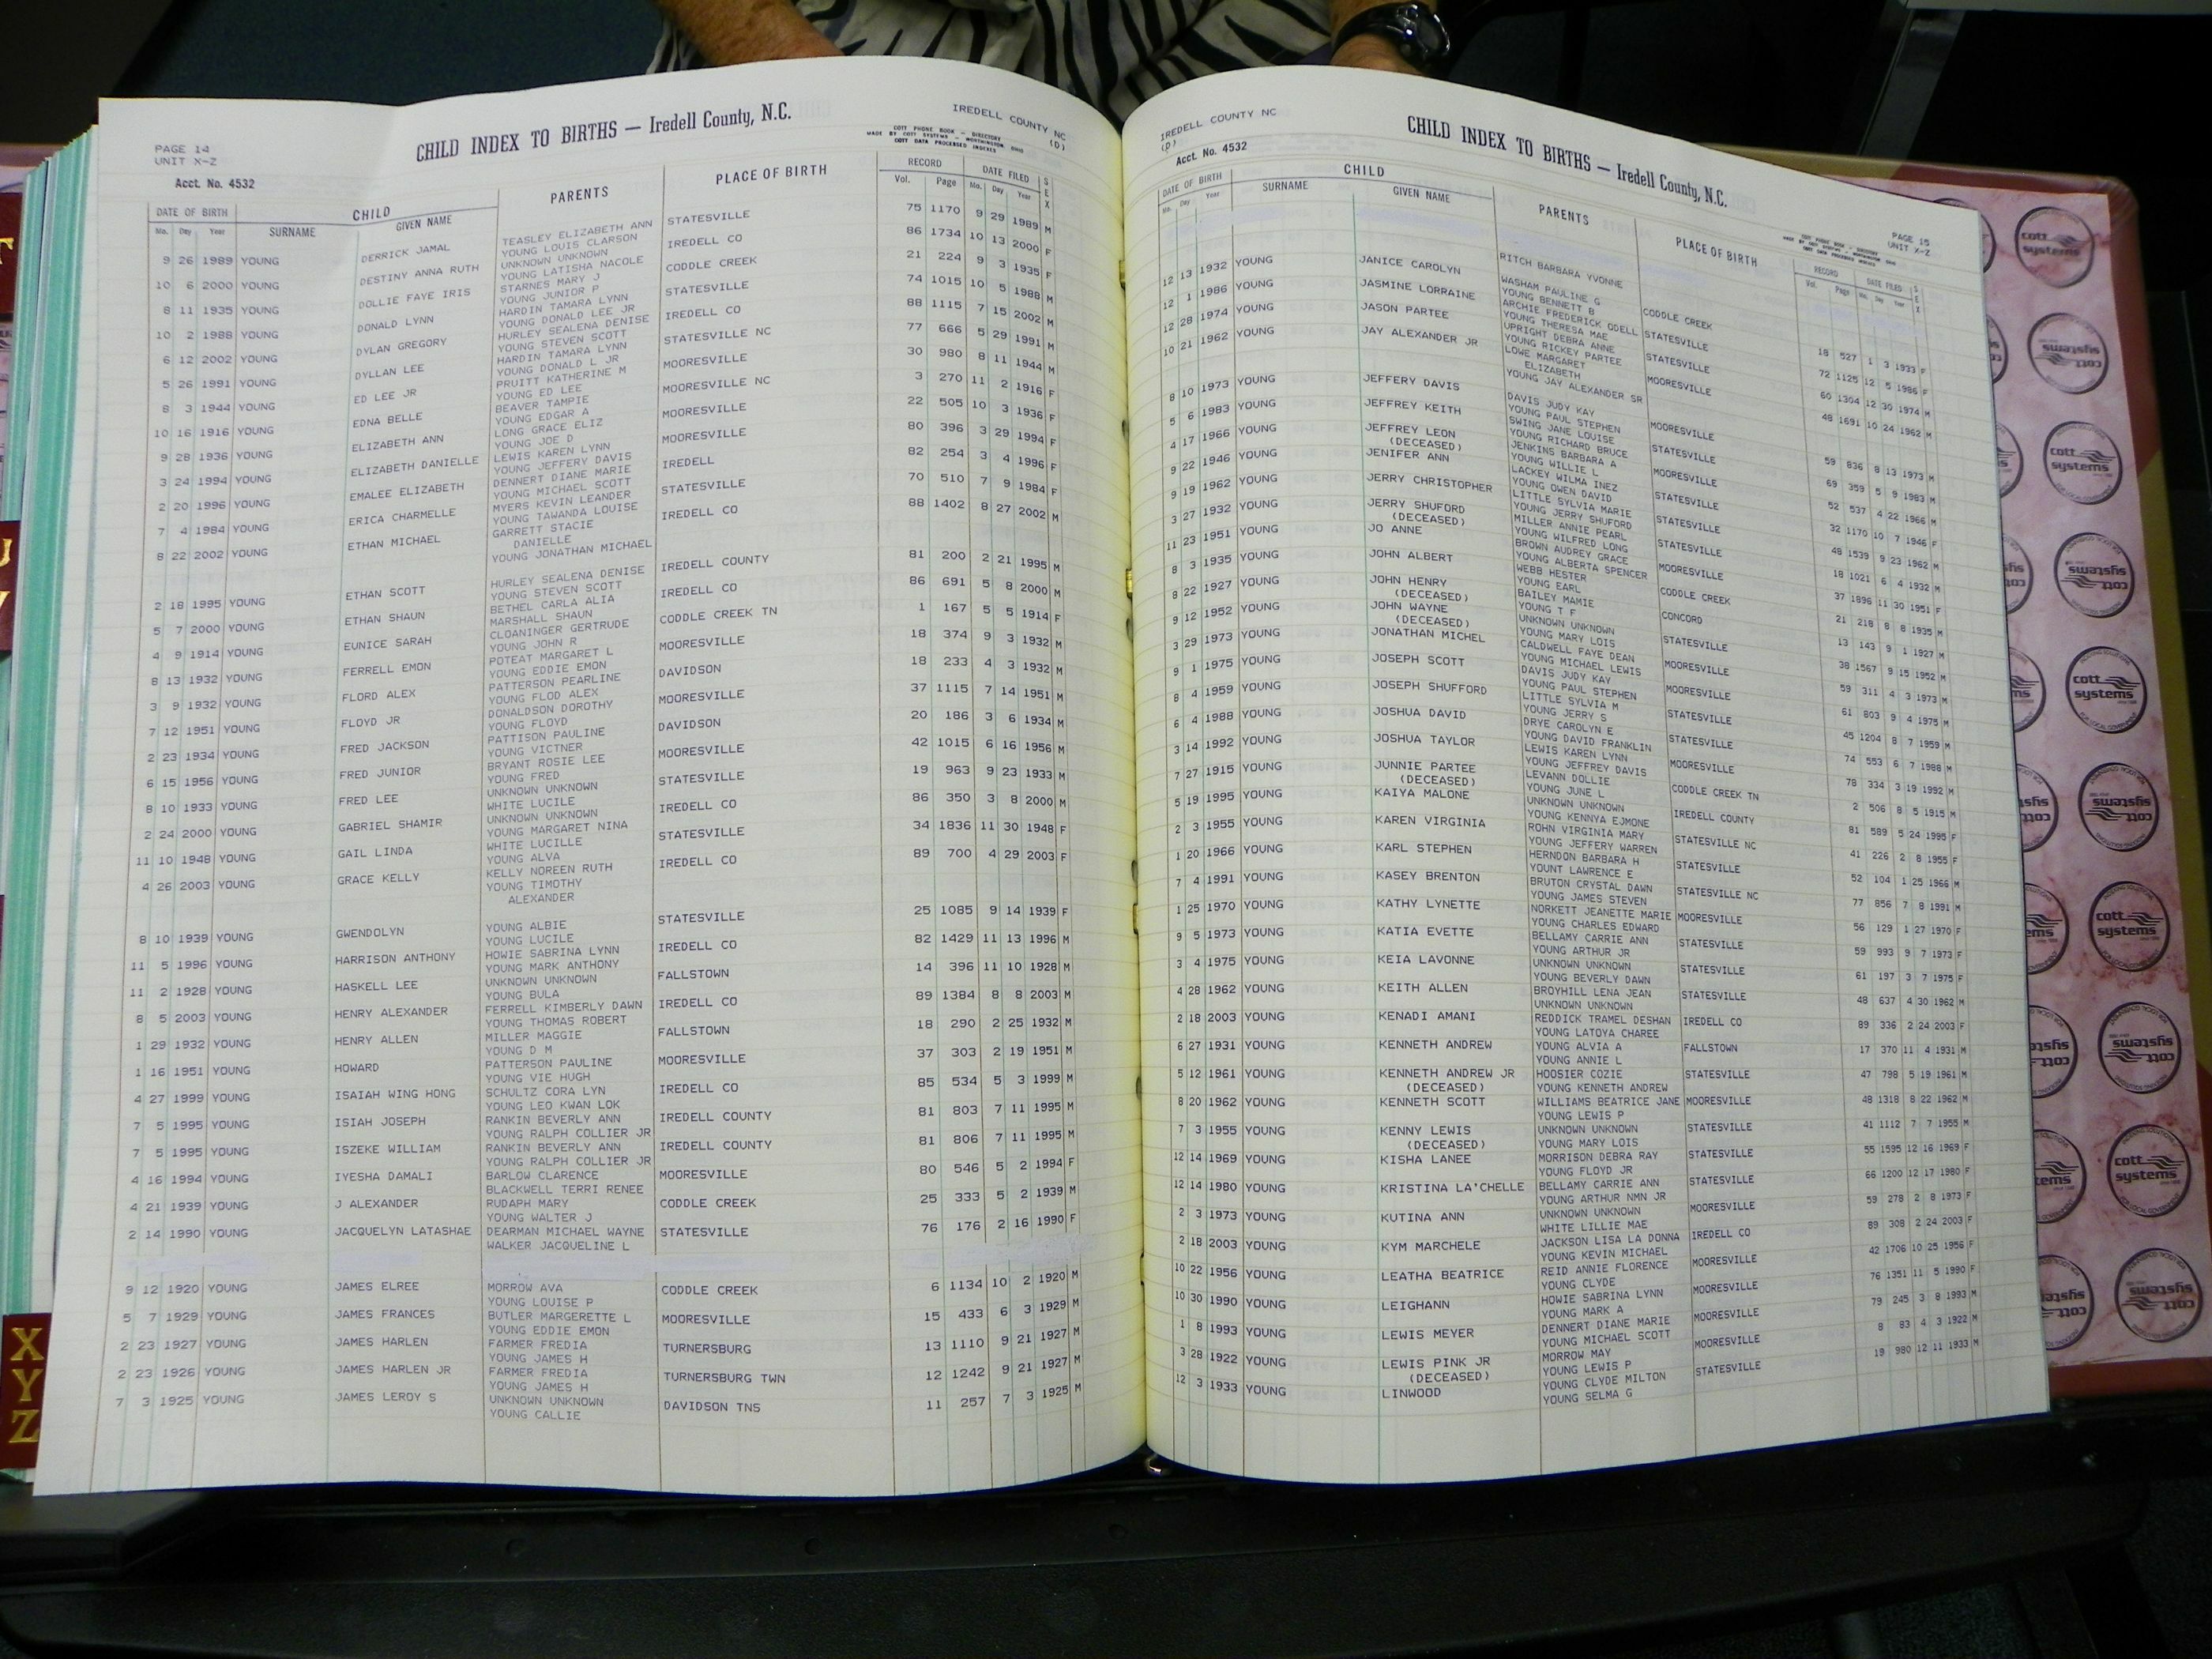 IREDELL COUNTY NC
(D)
CHILD INDEX TO BIRTHS — Iredell County, N.C.
COTT PHONE BOOK — DIRECTORY
MADE BY COTT SYSTEMS — WORTHINGTON, OHIO
COTT DATA PROCESSED INDEXES
PAGE 14
UNIT X-Z
Acct. No. 4532
DATE OF BIRTH CHILD PARENTS PLACE OF BIRTH RECORD DATE FILED SEX
Mo. Day Year SURNAME GIVEN NAME Vol. Page Mo. Day Year
9 26 1989 YOUNG DERRICK JAMAL TEASLEY ELIZABETH ANN STATESVILLE 75 1170 9 29 1989 M
YOUNG LOUIS CLARSON
10 6 2000 YOUNG DESTINY ANNA RUTH UNKNOWN UNKNOWN IREDELL CO 86 1734 10 13 2000 F
YOUNG LATISHA NACOLE
8 11 1935 YOUNG DOLLIE FAYE IRIS STARNES MARY J CODDLE CREEK 21 224 9 3 1935 F
YOUNG JUNIOR P
10 2 1988 YOUNG DONALD LYNN HARDIN TAMARA LYNN STATESVILLE 74 1015 10 5 1988 M
YOUNG DONALD LEE JR
6 12 2002 YOUNG DYLAN GREGORY HURLEY SEALENA DENISE IREDELL CO 88 1115 7 15 2002 M
YOUNG STEVEN SCOTT
5 26 1991 YOUNG DYLLAN LEE HARDIN TAMARA LYNN STATESVILLE NC 77 666 5 29 1991 M
YOUNG DONALD L JR
8 3 1944 YOUNG ED LEE JR PRUITT KATHERINE M MOORESVILLE 30 980 8 11 1944 M
YOUNG ED LEE
10 16 1916 YOUNG EDNA BELLE BEAVER TAMPIE MOORESVILLE NC 3 270 11 2 1916 F
YOUNG EDGAR A
9 28 1936 YOUNG ELIZABETH ANN LONG GRACE ELIZ MOORESVILLE 22 505 10 3 1936 F
YOUNG JOE D
3 24 1994 YOUNG ELIZABETH DANIELLE LEWIS KAREN LYNN MOORESVILLE 80 396 3 29 1994 F
YOUNG JEFFERY DAVIS
2 20 1996 YOUNG EMALEE ELIZABETH DENNERT DIANE MARIE IREDELL 82 254 3 4 1996 F
YOUNG MICHAEL SCOTT
7 4 1984 YOUNG ERICA CHARMELLE MYERS KEVIN LEANDER STATESVILLE 70 510 7 9 1984 F
YOUNG TAWANDA LOUISE
8 22 2002 YOUNG ETHAN MICHAEL GARRETT STACIE IREDELL CO 88 1402 8 27 2002 M
DANIELLE
YOUNG JONATHAN MICHAEL
2 18 1995 YOUNG ETHAN SCOTT HURLEY SEALENA DENISE IREDELL COUNTY 81 200 2 21 1995 M
YOUNG STEVEN SCOTT
5 7 2000 YOUNG ETHAN SHAUN BETHEL CARLA ALIA IREDELL CO 86 691 5 8 2000 M
MARSHALL SHAUN
4 9 1914 YOUNG EUNICE SARAH CLOANINGER GERTRUDE CODDLE CREEK TN 1 167 5 5 1914 F
YOUNG JOHN R
8 13 1932 YOUNG FERRELL EMON POTEAT MARGARET L MOORESVILLE 18 374 9 3 1932 M
YOUNG EDDIE EMON
3 9 1932 YOUNG FLORD ALEX PATTERSON PEARLINE DAVIDSON 18 233 4 3 1932 M
YOUNG FLOD ALEX
7 12 1951 YOUNG FLOYD JR DONALDSON DOROTHY MOORESVILLE 37 1115 7 14 1951 M
YOUNG FLOYD
2 23 1934 YOUNG FRED JACKSON PATTISON PAULINE DAVIDSON 20 186 3 6 1934 M
YOUNG VICTNER
6 15 1956 YOUNG FRED JUNIOR BRYANT ROSIE LEE MOORESVILLE 42 1015 6 16 1956 M
YOUNG FRED
8 10 1933 YOUNG FRED LEE UNKNOWN UNKNOWN STATESVILLE 19 963 9 23 1933 M
WHITE LUCILE
2 24 2000 YOUNG GABRIEL SHAMIR UNKNOWN UNKNOWN IREDELL CO 86 350 3 8 2000 M
YOUNG MARGARET NINA
11 10 1948 YOUNG GAIL LINDA WHITE LUCILLE STATESVILLE 34 1836 11 30 1948 F
YOUNG ALVA
4 26 2003 YOUNG GRACE KELLY KELLY NOREEN RUTH IREDELL CO 89 700 4 29 2003 F
YOUNG TIMOTHY
ALEXANDER
8 10 1939 YOUNG GWENDOLYN YOUNG ALBIE STATESVILLE 25 1085 9 14 1939 F
YOUNG LUCILE
11 5 1996 YOUNG HARRISON ANTHONY HOWIE SABRINA LYNN IREDELL CO 82 1429 11 13 1996 M
YOUNG MARK ANTHONY
11 2 1928 YOUNG HASKELL LEE UNKNOWN UNKNOWN FALLSTOWN 14 396 11 10 1928 M
YOUNG BULA
8 5 2003 YOUNG HENRY ALEXANDER FERRELL KIMBERLY DAWN IREDELL CO 89 1384 8 8 2003 M
YOUNG THOMAS ROBERT
1 29 1932 YOUNG HENRY ALLEN MILLER MAGGIE FALLSTOWN 18 290 2 25 1932 M
YOUNG D M
1 16 1951 YOUNG HOWARD PATTERSON PAULINE MOORESVILLE 37 303 2 19 1951 M
YOUNG VIE HUGH
4 27 1999 YOUNG ISAIAH WING HONG SCHULTZ CORA LYN IREDELL CO 85 534 5 3 1999 M
YOUNG LEO KWAN LOK
7 5 1995 YOUNG ISIAH JOSEPH RANKIN BEVERLY ANN IREDELL COUNTY 81 803 7 11 1995 M
YOUNG RALPH COLLIER JR
7 5 1995 YOUNG ISZEKE WILLIAM RANKIN BEVERLY ANN IREDELL COUNTY 81 806 7 11 1995 M
YOUNG RALPH COLLIER JR
4 16 1994 YOUNG IYESHA DAMALI BARLOW CLARENCE MOORESVILLE 80 546 5 2 1994 F
BLACKWELL TERRI RENEE
4 21 1939 YOUNG J ALEXANDER RUDAPH MARY CODDLE CREEK 25 333 5 2 1939 M
YOUNG WALTER J
2 14 1990 YOUNG JACQUELYN LATASHAE DEARMAN MICHAEL WAYNE STATESVILLE 76 176 2 16 1990 F
WALKER JACQUELINE L
9 12 1920 YOUNG JAMES ELREE MORROW AVA CODDLE CREEK 6 1134 10 2 1920 M
YOUNG LOUISE P
5 7 1929 YOUNG JAMES FRANCES BUTLER MARGERETTE L MOORESVILLE 15 433 6 3 1929 M
YOUNG EDDIE EMON
2 23 1927 YOUNG JAMES HARLEN FARMER FREDIA TURNERSBURG 13 1110 9 21 1927 M
YOUNG JAMES H
2 23 1926 YOUNG JAMES HARLEN JR FARMER FREDIA TURNERSBURG TWN 12 1242 9 21 1927 M
YOUNG JAMES H
7 3 1925 YOUNG JAMES LEROY S UNKNOWN UNKNOWN DAVIDSON TNS 11 257 7 3 1925 M
YOUNG CALLIE
X
Y
Z
IREDELL COUNTY NC
(D)
CHILD INDEX TO BIRTHS — Iredell County, N.C.
Acct. No. 4532
PAGE 15
UNIT X-Z
DATE OF BIRTH CHILD PARENTS PLACE OF BIRTH RECORD DATE FILED SEX
Mo. Day Year SURNAME GIVEN NAME Vol. Page Mo. Day Year
RITCH BARBARA YVONNE
12 13 1932 YOUNG JANICE CAROLYN WASHAM PAULINE G CODDLE CREEK 18 527 1 3 1933 F
YOUNG BENNETT B
12 1 1986 YOUNG JASMINE LORRAINE ARCHIE FREDERICK ODELL STATESVILLE 72 1125 12 5 1986 F
YOUNG THERESA MAE
12 28 1974 YOUNG JASON PARTEE UPRIGHT DEBRA ANNE STATESVILLE 60 1304 12 30 1974 M
YOUNG RICKEY PARTEE
10 21 1962 YOUNG JAY ALEXANDER JR LOWE MARGARET MOORESVILLE 48 1691 10 24 1962 M
ELIZABETH
YOUNG JAY ALEXANDER SR
8 10 1973 YOUNG JEFFERY DAVIS DAVIS JUDY KAY MOORESVILLE 59 836 8 13 1973 M
YOUNG PAUL STEPHEN
5 6 1983 YOUNG JEFFREY KEITH SWING JANE LOUISE STATESVILLE 69 359 5 9 1983 M
YOUNG RICHARD BRUCE
4 17 1966 YOUNG JEFFREY LEON JENKINS BARBARA A MOORESVILLE 52 537 4 22 1966 M
(DECEASED) YOUNG WILLIE L
9 22 1946 YOUNG JENIFER ANN LACKEY WILMA INEZ STATESVILLE 32 1170 10 7 1946 F
YOUNG OWEN DAVID
9 19 1962 YOUNG JERRY CHRISTOPHER LITTLE SYLVIA MARIE STATESVILLE 48 1539 9 23 1962 M
YOUNG JERRY SHUFORD
3 27 1932 YOUNG JERRY SHUFORD MILLER ANNIE PEARL STATESVILLE 18 1021 6 4 1932 M
(DECEASED) YOUNG WILFRED LONG
11 23 1951 YOUNG JO ANNE BROWN AUDREY GRACE MOORESVILLE 37 1896 11 30 1951 F
YOUNG ALBERTA SPENCER
8 3 1935 YOUNG JOHN ALBERT WEBB HESTER CODDLE CREEK 21 218 8 8 1935 M
YOUNG EARL
8 22 1927 YOUNG JOHN HENRY BAILEY MAMIE CONCORD 13 143 9 1 1927 M
(DECEASED) YOUNG T F
9 12 1952 YOUNG JOHN WAYNE UNKNOWN UNKNOWN STATESVILLE 38 1567 9 15 1952 M
(DECEASED) YOUNG MARY LOIS
3 29 1973 YOUNG JONATHAN MICHEL CALDWELL FAYE DEAN MOORESVILLE 59 311 4 3 1973 M
YOUNG MICHAEL LEWIS
9 1 1975 YOUNG JOSEPH SCOTT DAVIS JUDY KAY MOORESVILLE 61 803 9 4 1975 M
YOUNG PAUL STEPHEN
8 4 1959 YOUNG JOSEPH SHUFFORD LITTLE SYLVIA M STATESVILLE 45 1204 8 7 1959 M
YOUNG JERRY S
6 4 1988 YOUNG JOSHUA DAVID DRYE CAROLYN E STATESVILLE 74 553 6 7 1988 M
YOUNG DAVID FRANKLIN
3 14 1992 YOUNG JOSHUA TAYLOR LEWIS KAREN LYNN MOORESVILLE 78 334 3 19 1992 M
YOUNG JEFFREY DAVIS
7 27 1915 YOUNG JUNNIE PARTEE LEVANN DOLLIE CODDLE CREEK TN 2 506 8 5 1915 M
(DECEASED) YOUNG JUNE L
5 19 1995 YOUNG KAIYA MALONE UNKNOWN UNKNOWN IREDELL COUNTY 81 589 5 24 1995 F
YOUNG KENNYA EJMONE
2 3 1955 YOUNG KAREN VIRGINIA ROHN VIRGINIA MARY STATESVILLE NC 41 226 2 8 1955 F
YOUNG JEFFERY WARREN
1 20 1966 YOUNG KARL STEPHEN HERNDON BARBARA H STATESVILLE 52 104 1 25 1966 M
YOUNT LAWRENCE E
7 4 1991 YOUNG KASEY BRENTON BRUTON CRYSTAL DAWN STATESVILLE NC 77 856 7 8 1991 M
YOUNG JAMES STEVEN
1 25 1970 YOUNG KATHY LYNETTE NORKETT JEANETTE MARIE MOORESVILLE 56 129 1 27 1970 F
YOUNG CHARLES EDWARD
9 5 1973 YOUNG KATIA EVETTE BELLAMY CARRIE ANN STATESVILLE 59 993 9 7 1973 F
YOUNG ARTHUR JR
3 4 1975 YOUNG KEIA LAVONNE UNKNOWN UNKNOWN STATESVILLE 61 197 3 7 1975 F
YOUNG BEVERLY DAWN
4 28 1962 YOUNG KEITH ALLEN BROYHILL LENA JEAN STATESVILLE 48 637 4 30 1962 M
UNKNOWN UNKNOWN
2 18 2003 YOUNG KENADI AMANI REDDICK TRAMEL DESHAN IREDELL CO 89 336 2 24 2003 F
YOUNG LATOYA CHAREE
6 27 1931 YOUNG KENNETH ANDREW YOUNG ALVIA A FALLSTOWN 17 370 11 4 1931 M
YOUNG ANNIE L
5 12 1961 YOUNG KENNETH ANDREW JR HOOSIER COZIE STATESVILLE 47 798 5 19 1961 M
(DECEASED) YOUNG KENNETH ANDREW
8 20 1962 YOUNG KENNETH SCOTT WILLIAMS BEATRICE JANE MOORESVILLE 48 1318 8 22 1962 M
YOUNG LEWIS P
7 3 1955 YOUNG KENNY LEWIS UNKNOWN UNKNOWN STATESVILLE 41 1112 7 7 1955 M
(DECEASED) YOUNG MARY LOIS
12 14 1969 YOUNG KISHA LANEE MORRISON DEBRA RAY STATESVILLE 55 1595 12 16 1969 F
YOUNG FLOYD JR
12 14 1980 YOUNG KRISTINA LA'CHELLE BELLAMY CARRIE ANN STATESVILLE 66 1200 12 17 1980 F
YOUNG ARTHUR NMN JR
2 3 1973 YOUNG KUTINA ANN UNKNOWN UNKNOWN MOORESVILLE 59 278 2 8 1973 F
WHITE LILLIE MAE
2 18 2003 YOUNG KYM MARCHELE JACKSON LISA LA DONNA IREDELL CO 89 308 2 24 2003 F
YOUNG KEVIN MICHAEL
10 22 1956 YOUNG LEATHA BEATRICE REID ANNIE FLORENCE MOORESVILLE 42 1706 10 25 1956 F
YOUNG CLYDE
10 30 1990 YOUNG LEIGHANN HOWIE SABRINA LYNN MOORESVILLE 76 1351 11 5 1990 F
YOUNG MARK A
1 8 1993 YOUNG LEWIS MEYER DENNERT DIANE MARIE MOORESVILLE 79 245 3 8 1993 M
YOUNG MICHAEL SCOTT
3 28 1922 YOUNG LEWIS PINK JR MORROW MAY MOORESVILLE 8 83 4 3 1922 M
(DECEASED) YOUNG LEWIS P
12 3 1933 YOUNG LINWOOD YOUNG CLYDE MILTON STATESVILLE 19 980 12 11 1933 M
YOUNG SELMA G
cott
systems